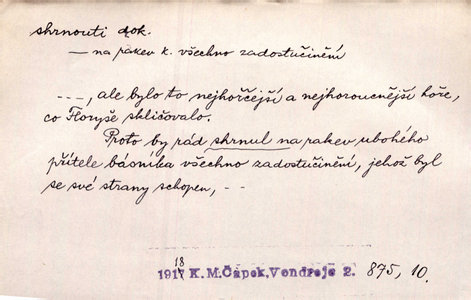 shrnouti dok.
— na rakev k. všechno zadostučinění
---, ale bylo to nejhorčejší a nejhoroucnější hoře,
co Floryše skličovalo.
Proto by rád shrnul na rakev ubohého
přítele básníka všechno zadostučinění, jehož byl
se své strany schopen, - -
18
1917 K. M. Čapek, Vendreje 2. 875, 10.